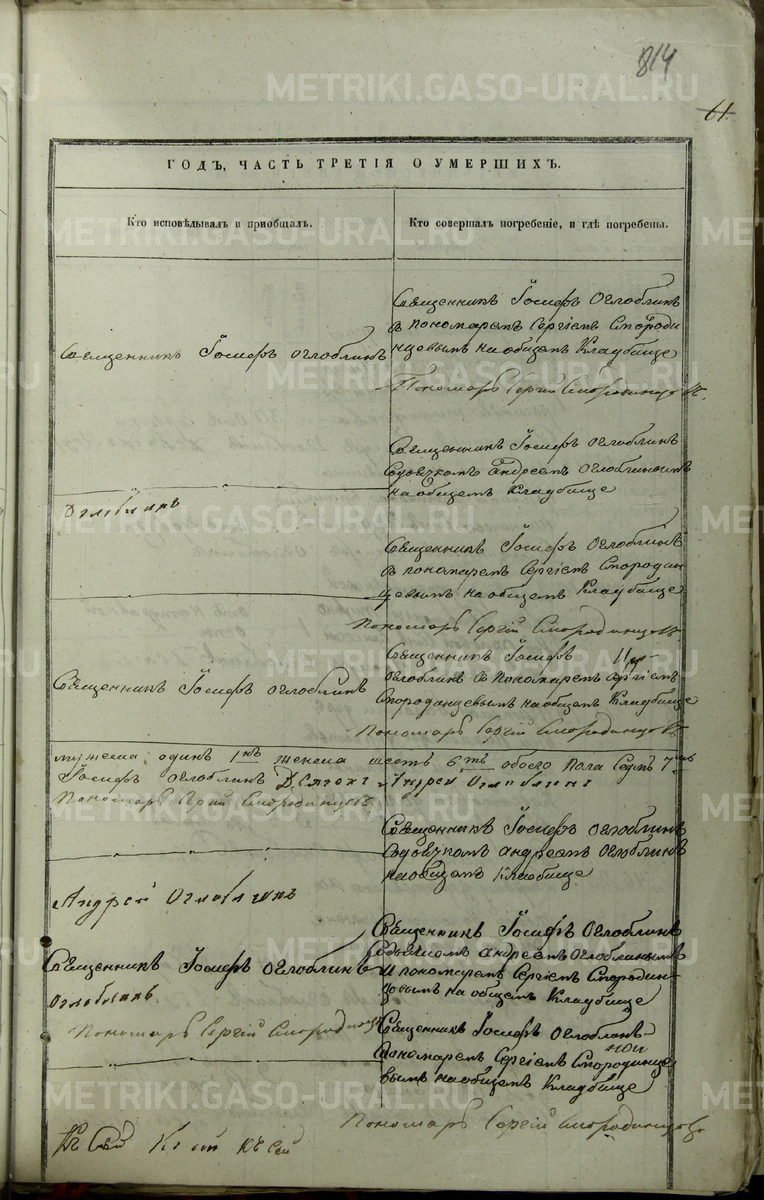 814
61
METRIKI.GASO-URAL.RU
ГОДЪ, ЧАСТЬ ТРЕТІЯ О УМЕРШИХЪ.
Кто исповѣдывалъ и пріобщалъ.
Кто совершалъ погребеніе, и гдѣ погребены.
Священникъ Іосифъ Оглоблинъ
Священникъ Іосифъ Оглоблинъ
с пономаремъ Сергіемъ Смороди
нцевымъ на общемъ Кладбище
Пономарь Сергій Смородинцовъ.
Оглоблинъ
Священникъ Іосифъ Оглоблинъ
Андреемъ Оглоблинымъ
на общемъ Кладбище
Священникъ Іосифъ Оглоблинъ
с пономаремъ Сергіемъ Смородин
цевымъ на общемъ Кладбище
Пономарь Сергій Смородинцовъ
Священникъ Іосифъ Оглоблинъ
Священникъ Іосифъ
Оглоблинъ с пономаремъ Сергіемъ
Смородинцевымъ на общемъ Кладбище
Пономарь Сергій Смородинцовъ
мужеска одинъ 1нъ женска шесть 6ть обоего пола семь 7мь
Іосифъ Оглоблинъ Діаконъ Андрей Оглоблинъ
Пономарь Сергій Смородинцовъ
Андрей Оглоблинъ
Священникъ Іосифъ Оглоблинъ
Андреемъ Оглоблинымъ
на общемъ Кладбище
Священникъ Іосифъ Оглоблинъ
Оглоблинъ
Пономарь Сергій Смородинцовъ
Священникъ Іосифъ Оглоблинъ
Андреемъ Оглоблинымъ
и пономаремъ Сергіемъ Смородин
цовымъ на общемъ Кладбище
Священникъ Іосифъ Оглоблинъ
пономаремъ Сергіемъ Смородинце
вымъ на общемъ Кладбище
Пономарь Сергій Смородинцовъ
Къ Сей
къ сей